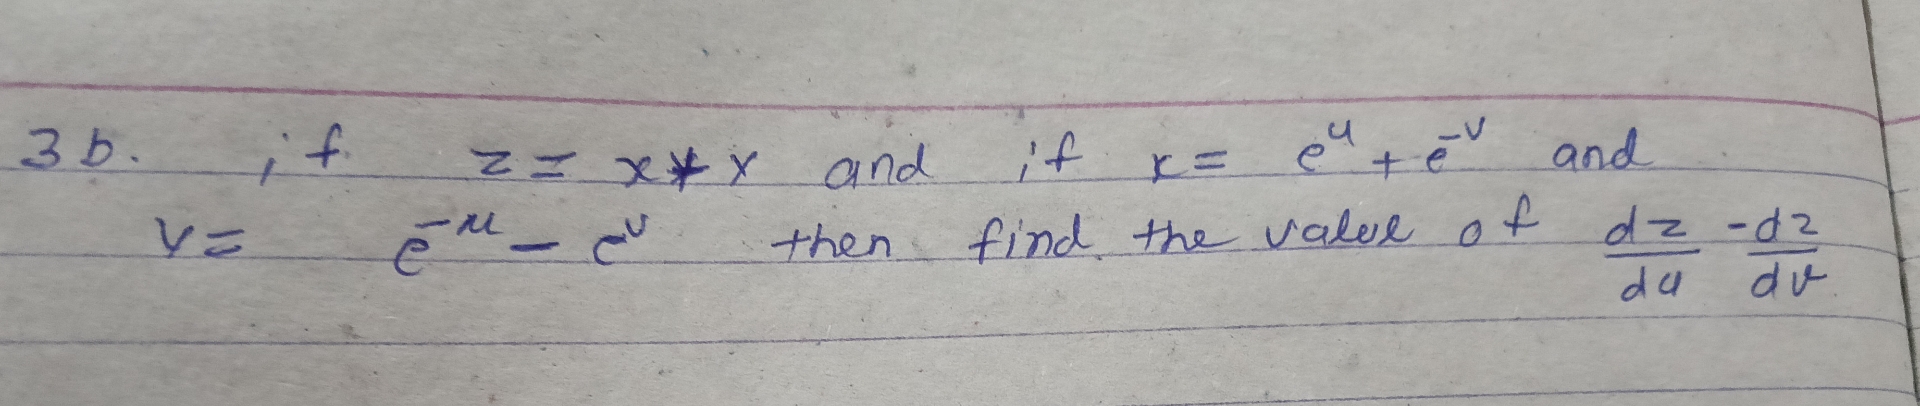 3b. if z = x * y and if x = e^u + e^-v and
y = e^-u - e^v then find the value of dz/du - dz/dv